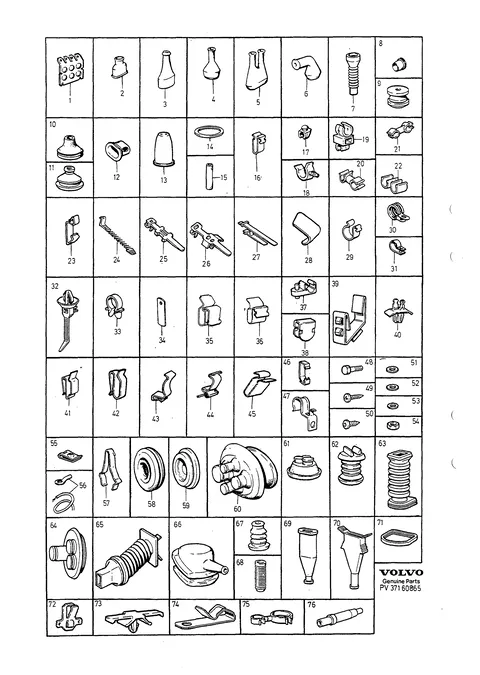 1 2 3 4 5 6 7 8
9
10
11 12 13 14 15 16 17 18 19 20 21 22
23 24 25 26 27 28 29 30
31
32 33 34 35 36 37 38 39 40
41 42 43 44 45 46 47 48 49 50 51 52 53 54
55 56 57 58 59 60 61 62 63
64 65 66 67 68 69 70 71
VOLVO
Genuine Parts
PV 37160865
72 73 74 75 76